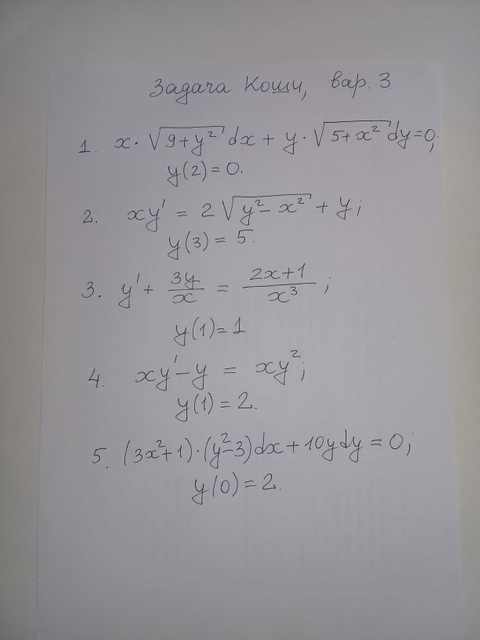 Задача Коши, вар. 3
1. x·√(9+y²) dx + y·√(5+x²) dy=0;
y(2)=0.
2. xy' = 2√(y²-x²) + y;
y(3)=5.
3. y' + 3y/x = (2x+1)/x³;
y(1)=1
4. xy'-y = xy²;
y(1)=2.
5. (3x²+1)·(y²-3)dx+10ydy=0;
y(0)=2.